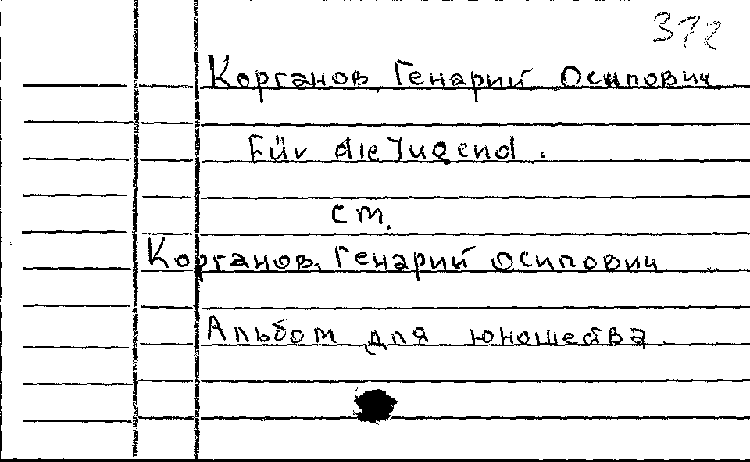 372
Корганов, Генарий Осипович
Für die Jugend.
см.
Корганов, Генарий Осипович
Альбом для юношества.